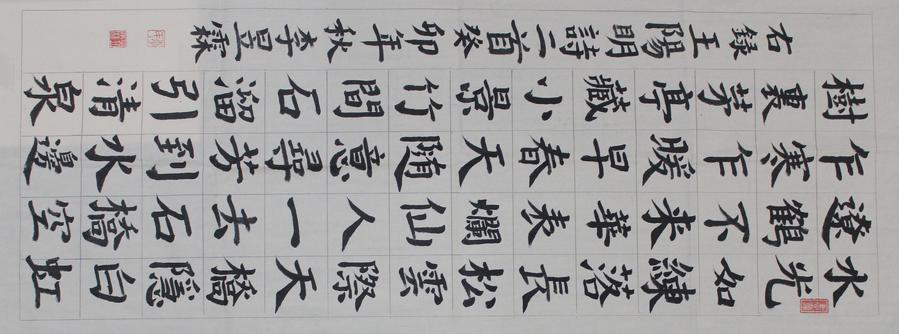 水光如練落長松雲際天橋隱白虹
遼鶴不来華表爛仙人一去石橋空
乍寒乍暖早春天随意尋芳到水邊
樹裏芳亭藏小景竹間石溜引清泉
右録王陽明詩二首癸卯年秋李昱霖